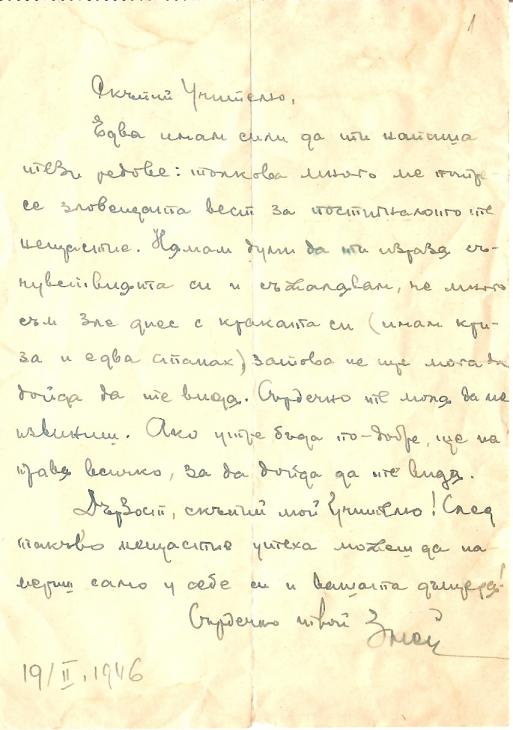 1
Скъпий Учителю,
Едва имам сили да ти напиша
тези редове: толкова много ме потре-
се зловещата вест за постигналото те
нещастие. Нямам думи да ти изразя съ-
чувствията си и съжалявам, че много
съм зле днес с краката си (имам кри-
за и едва станах) затова не ще мога да
дойда да те видя. Сърдечно те моля да ме
извиниш. Ако утре бъда по-добре, ще на
правя всичко, за да дойда да те видя.
Дързост, скъпий мой Учителю! След
такъво нещастие утеха можеш да на
мериш само у себе си и вашата дъщеря!
Сърдечно твой Змей
19/II.1946